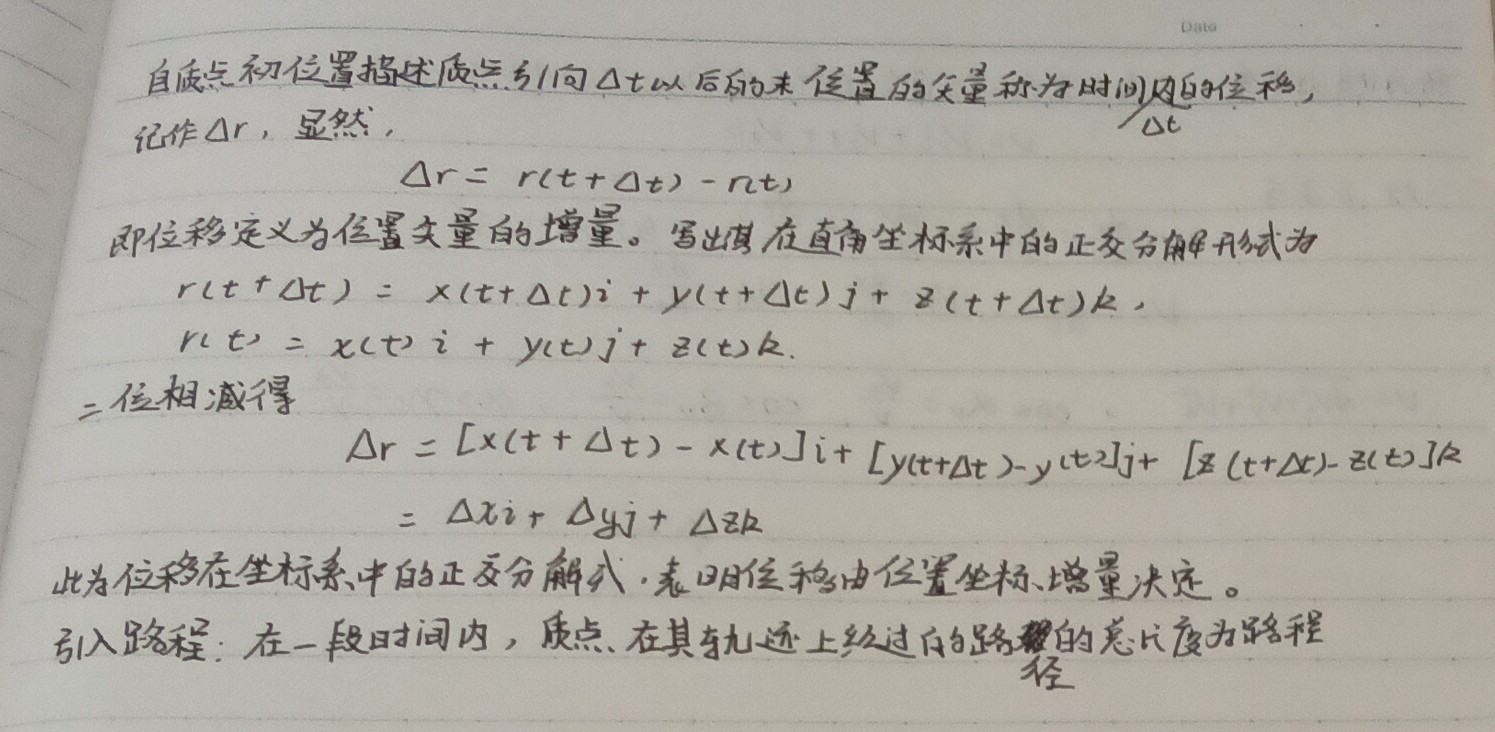 Date
自质点初位置描述质点引向Δt以后的末位置的矢量称为Δt时间内的位移,
记作Δr,显然,
Δr = r(t+Δt) - r(t)
即位移定义为位置矢量的增量。写出其在直角坐标系中的正交分解形式为
r(t+Δt) = x(t+Δt)i + y(t+Δt)j + z(t+Δt)k,
r(t) = x(t)i + y(t)j + z(t)k.
二位相减得
Δr = [x(t+Δt) - x(t)]i + [y(t+Δt) - y(t)]j + [z(t+Δt) - z(t)]k
= Δxi + Δyj + Δzk
此为位移在坐标系中的正交分解式.表明位移由位置坐标增量决定。
引入路程:在一段时间内,质点在其轨迹上经过的路径的总长度为路程